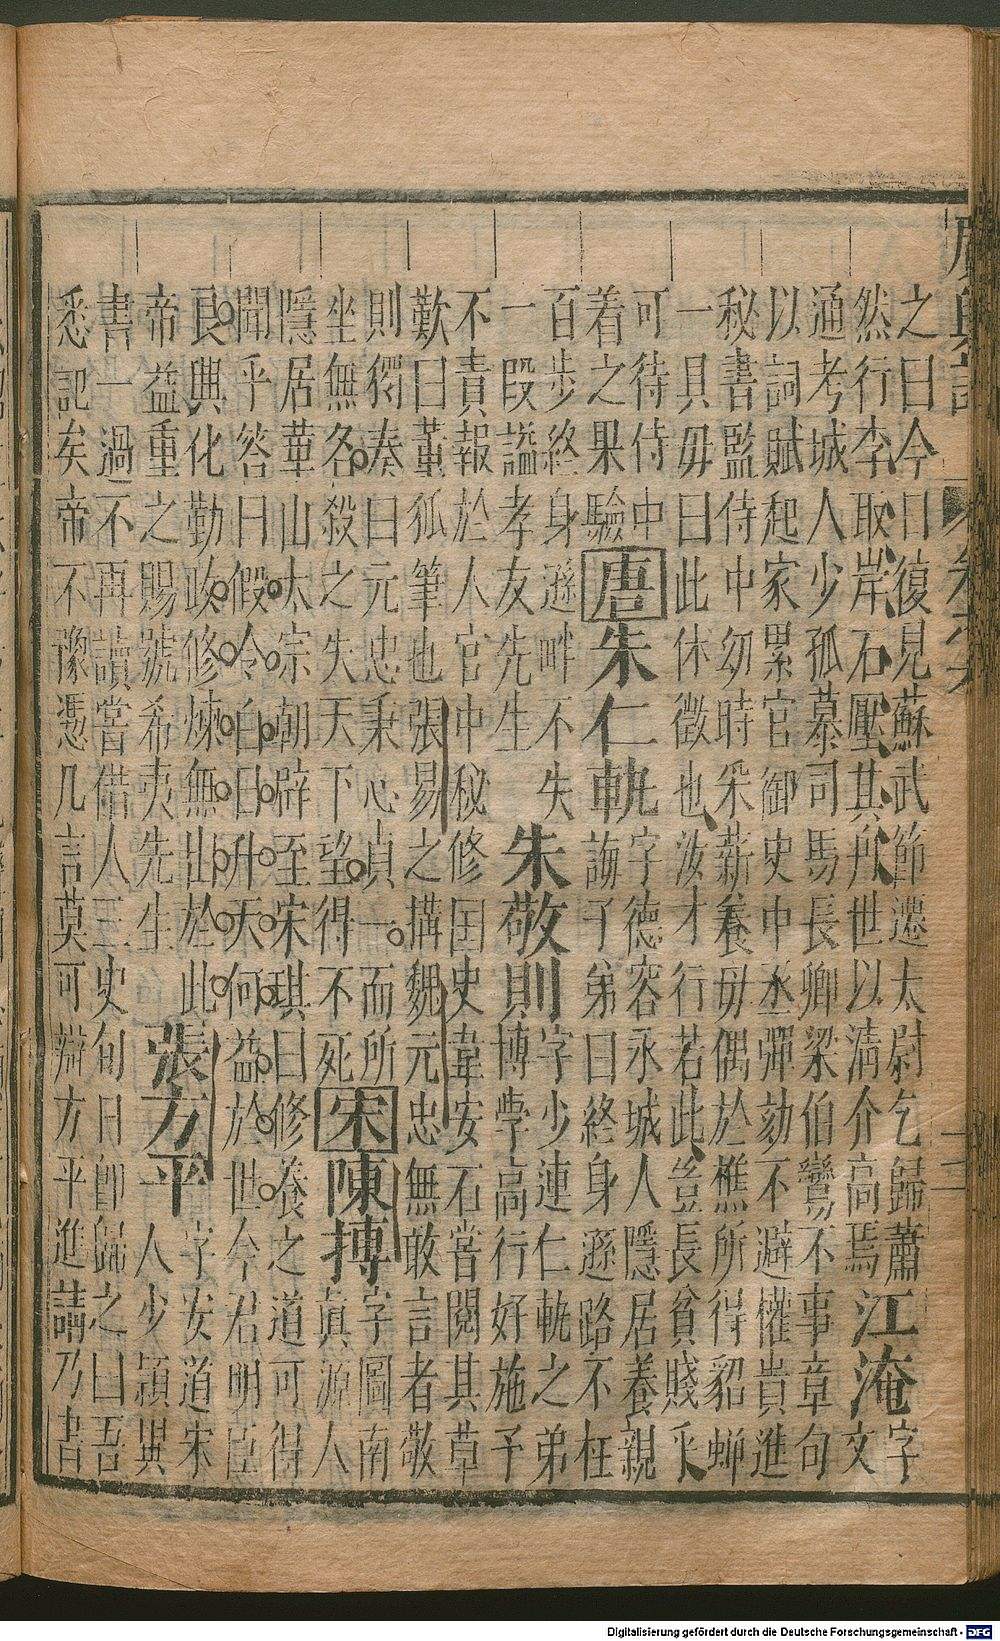 廣輿記 卷之六 十二
之曰今日復見蘇武節遷太尉乞歸蕭
然行李取岸石壓其舟世以清介高焉江淹字文
通考城人少孤慕司馬長卿梁伯鸞不事章句
以詞賦起家累官御史中丞彈劾不避權貴進
秘書監侍中幼時采薪養母偶於樵所得貂蟬
一具毋曰此休徵也汝才行若此豈長貧賤乎
可待侍中
着之果驗唐朱仁軌字德容永城人隱居養親
誨子弟曰終身遜路不枉
百步終身遜畔不失
一段謚孝友先生朱敬則字少連仁軌之弟
博學高行好施予
不責報於人官中秘修国史韋安石嘗閱其草
歎曰董狐筆也張易之搆魏元忠無敢言者敬
則獨奏曰元忠秉心貞一而所
坐無名殺之失天下望得不死宋陳摶字圖南
真源人
隱居華山太宗朝辟至宋琪曰修養之道可得
聞乎答曰假令白日升天何益於世今君明臣
良興化勤政修煉無出於此
帝益重之賜號希夷先生張方平字安道宋
人少穎異
書一過不再讀嘗借人三史旬日即歸之曰吾
悉記矣帝不豫憑几言莫可辯方平進請乃書
Digitalisierung gefördert durch die Deutsche Forschungsgemeinschaft - DFG